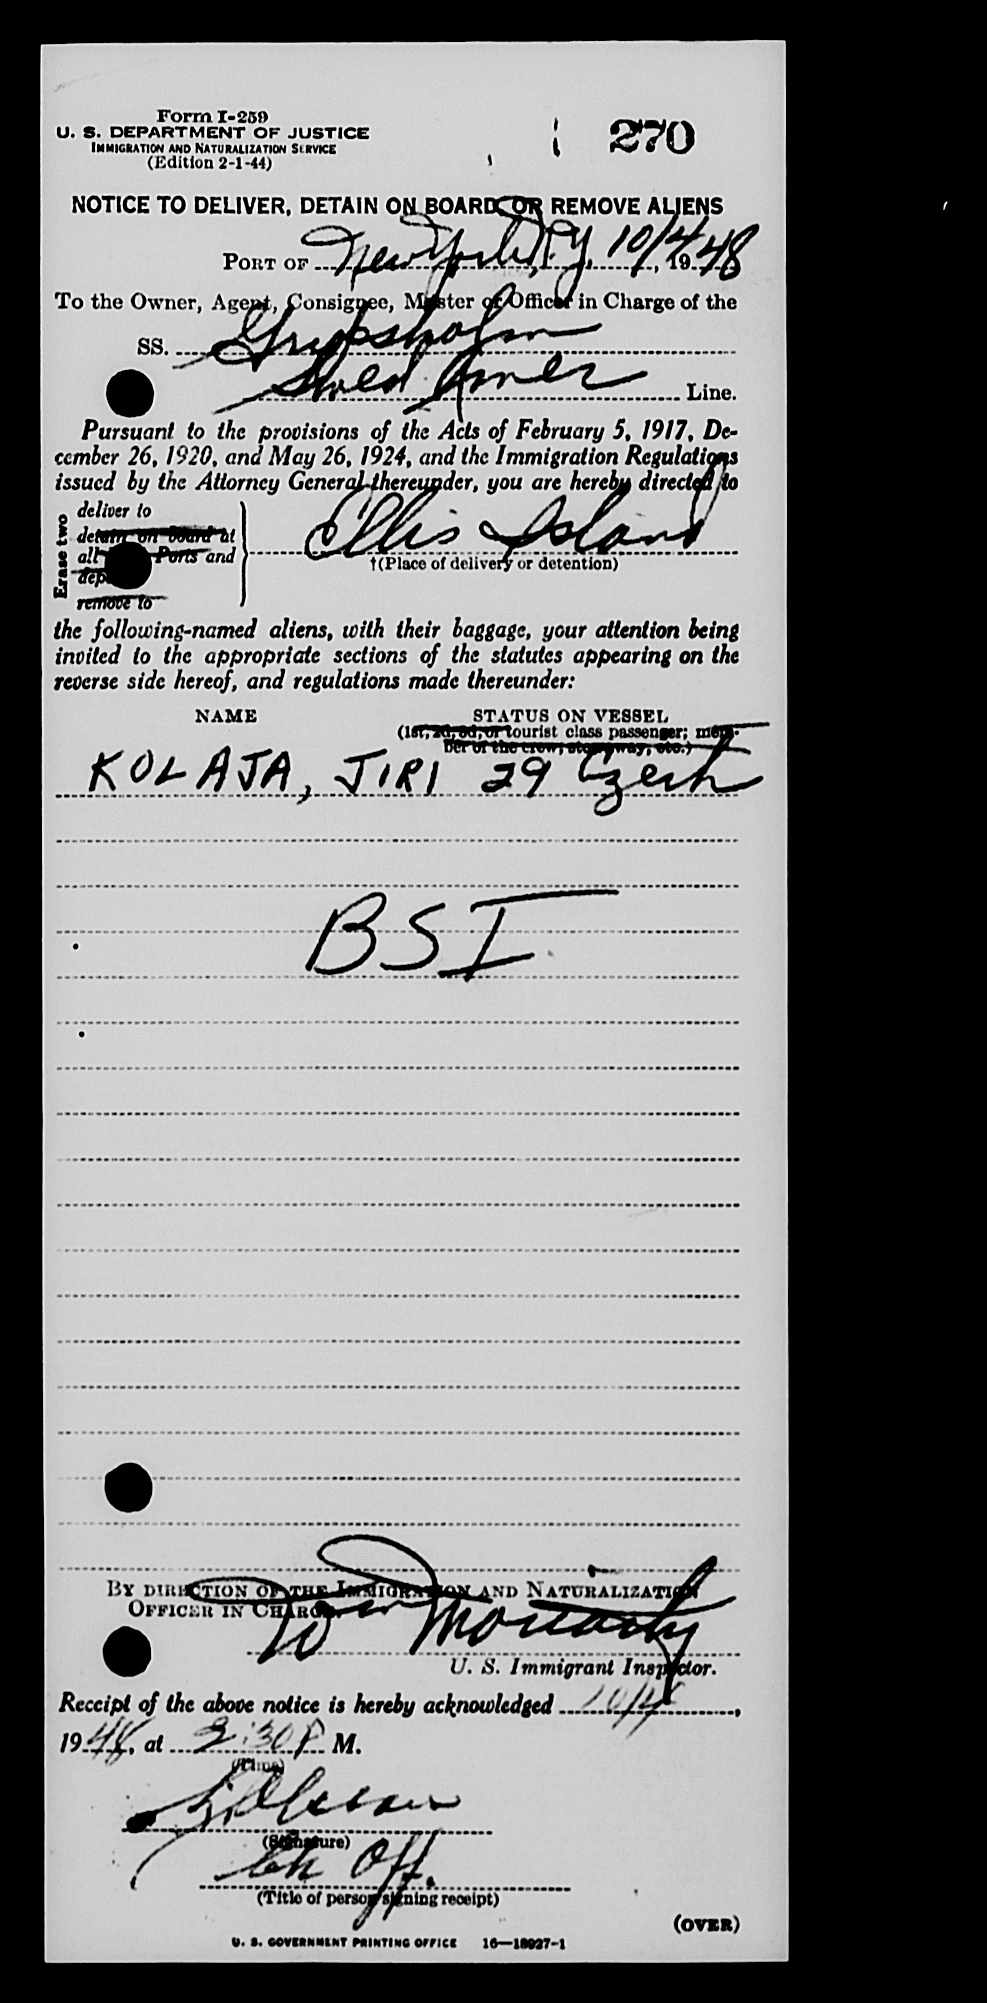 Form I-259
U. S. DEPARTMENT OF JUSTICE
IMMIGRATION AND NATURALIZATION SERVICE
(Edition 2-1-44)
270
NOTICE TO DELIVER, DETAIN ON BOARD, OR REMOVE ALIENS
PORT OF New York N.Y. 10/4, 1948
To the Owner, Agent, Consignee, Master or Officer in Charge of the
SS. Gripsholm
Swed Amer Line.
Pursuant to the provisions of the Acts of February 5, 1917, De-
cember 26, 1920, and May 26, 1924, and the Immigration Regulations
issued by the Attorney General thereunder, you are hereby directed to
Erase two
deliver to
detain on board at
all Ports and
dep
remove to
Ellis Island
†(Place of delivery or detention)
the following-named aliens, with their baggage, your attention being
invited to the appropriate sections of the statutes appearing on the
reverse side hereof, and regulations made thereunder:
NAME STATUS ON VESSEL
(1st, 2d, 3d, or tourist class passenger; mem-
ber of the crew, stowaway, etc.)
KOLAJA, JIRI 29 Czech
BSI
BY DIRECTION OF THE IMMIGRATION AND NATURALIZATION
OFFICER IN CHARGE.
Wm Moriarty
U. S. Immigrant Inspector.
Receipt of the above notice is hereby acknowledged 10/4,
1948, at 2:30 P M.
(Time)
(Signature)
Ch Off.
(Title of person signing receipt)
(OVER)
U. S. GOVERNMENT PRINTING OFFICE 16—18927-1